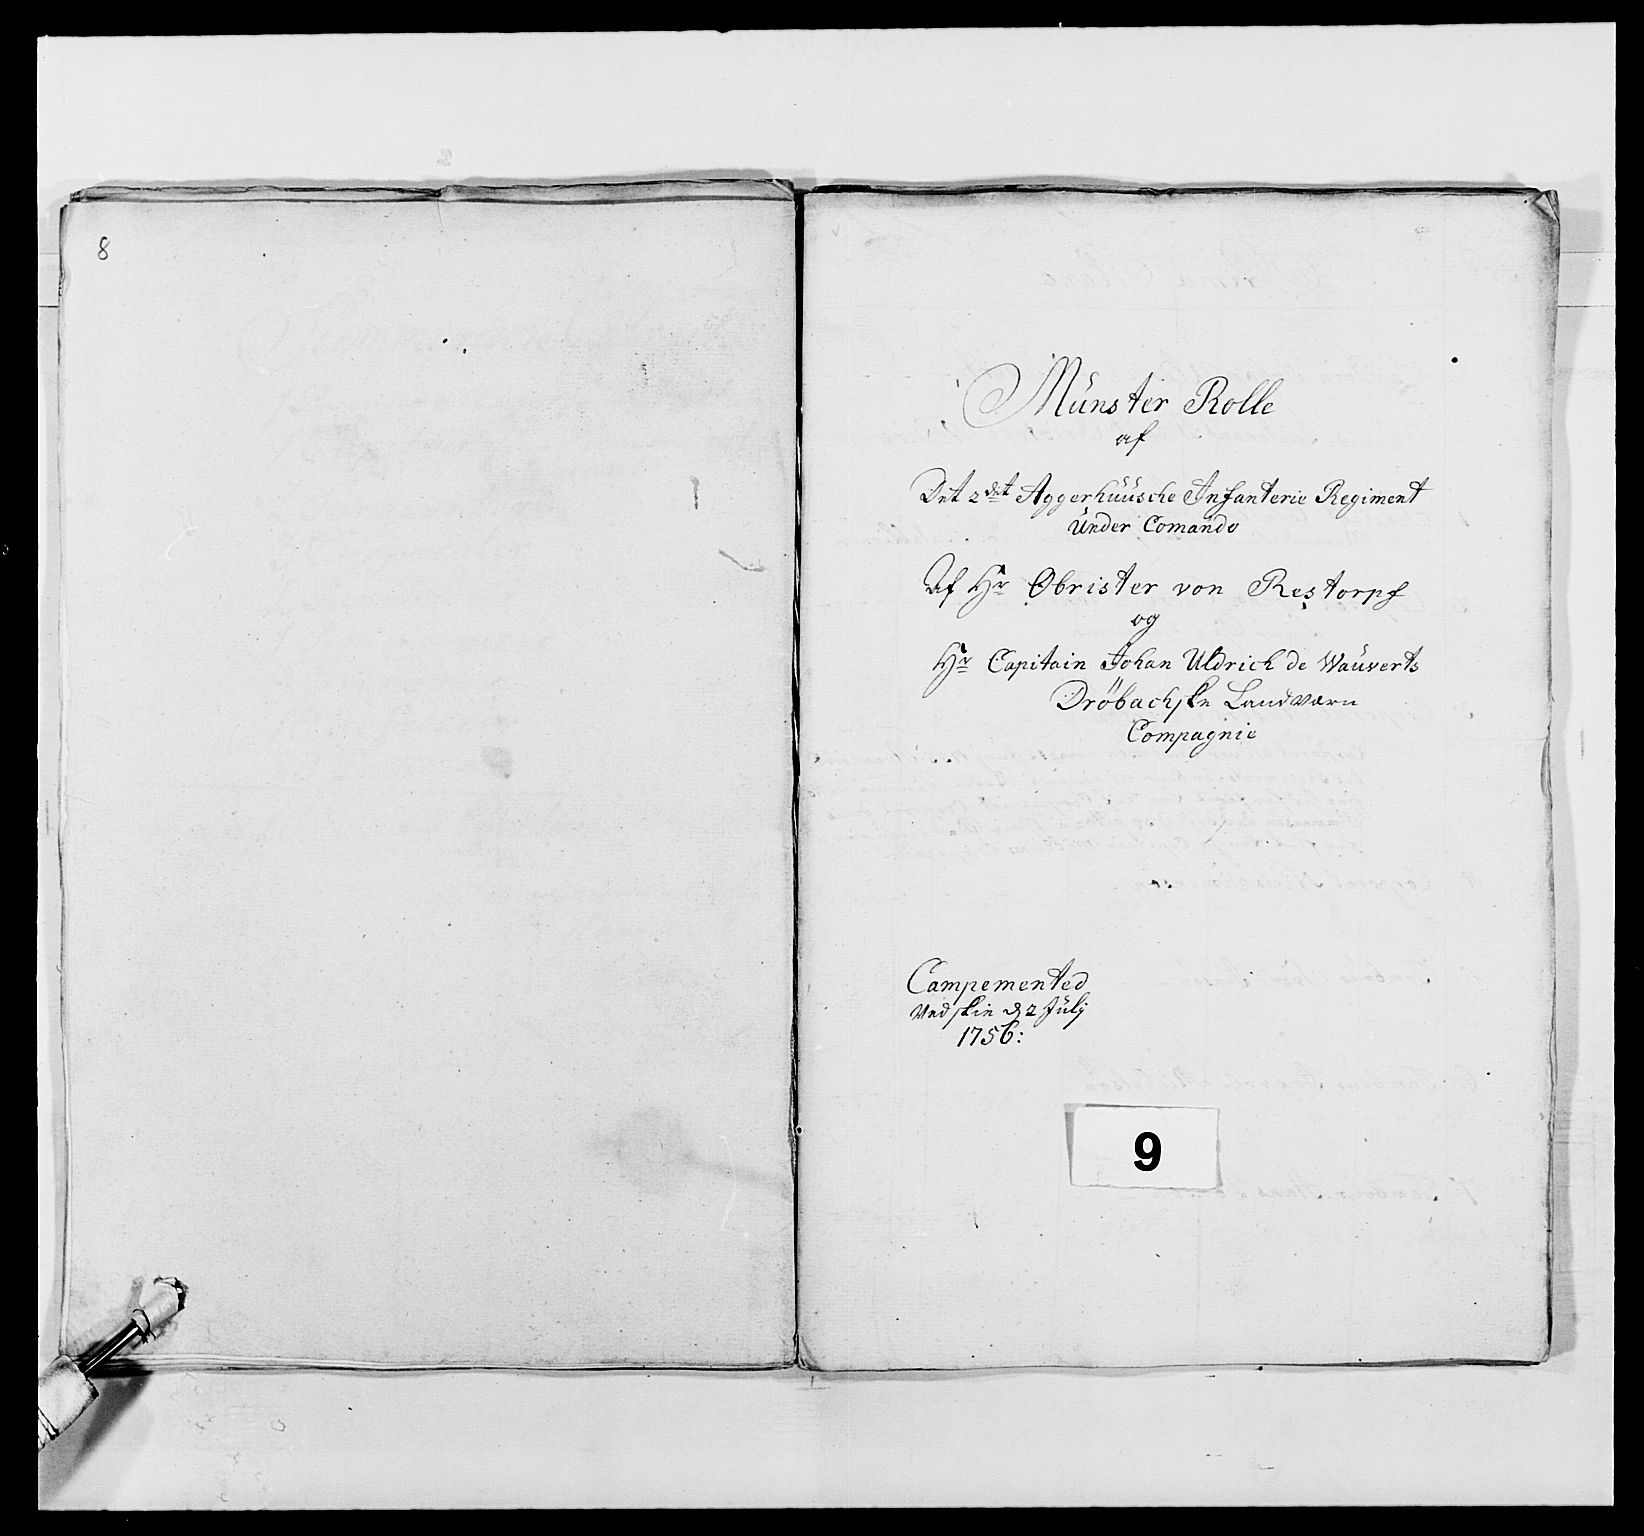 8
Münster Rolle
af
Det 2det Aggerhüüsche Infanterie Regiment
Ünder Comando
Af Hr Obrister von Restorpf
og
Hr Capitain Johan Uldrich de Wauverts
Dröbachske Landværn
Compagnie
Campemented
Ved skie d 2 Julj
1756:
9